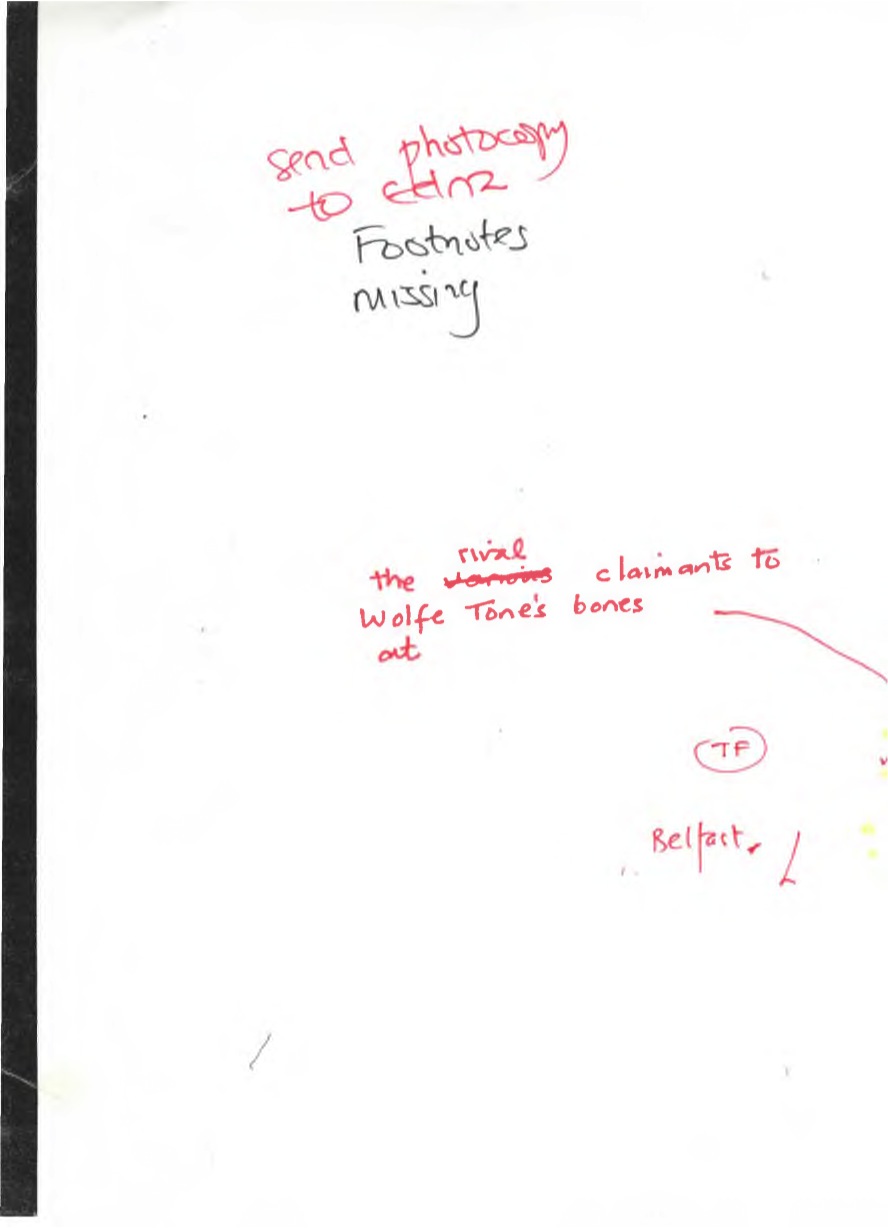 send photocopy
to
Footnotes
missing
rival
the various claimants to
Wolfe Tone's bones
at
TF
Belfast.